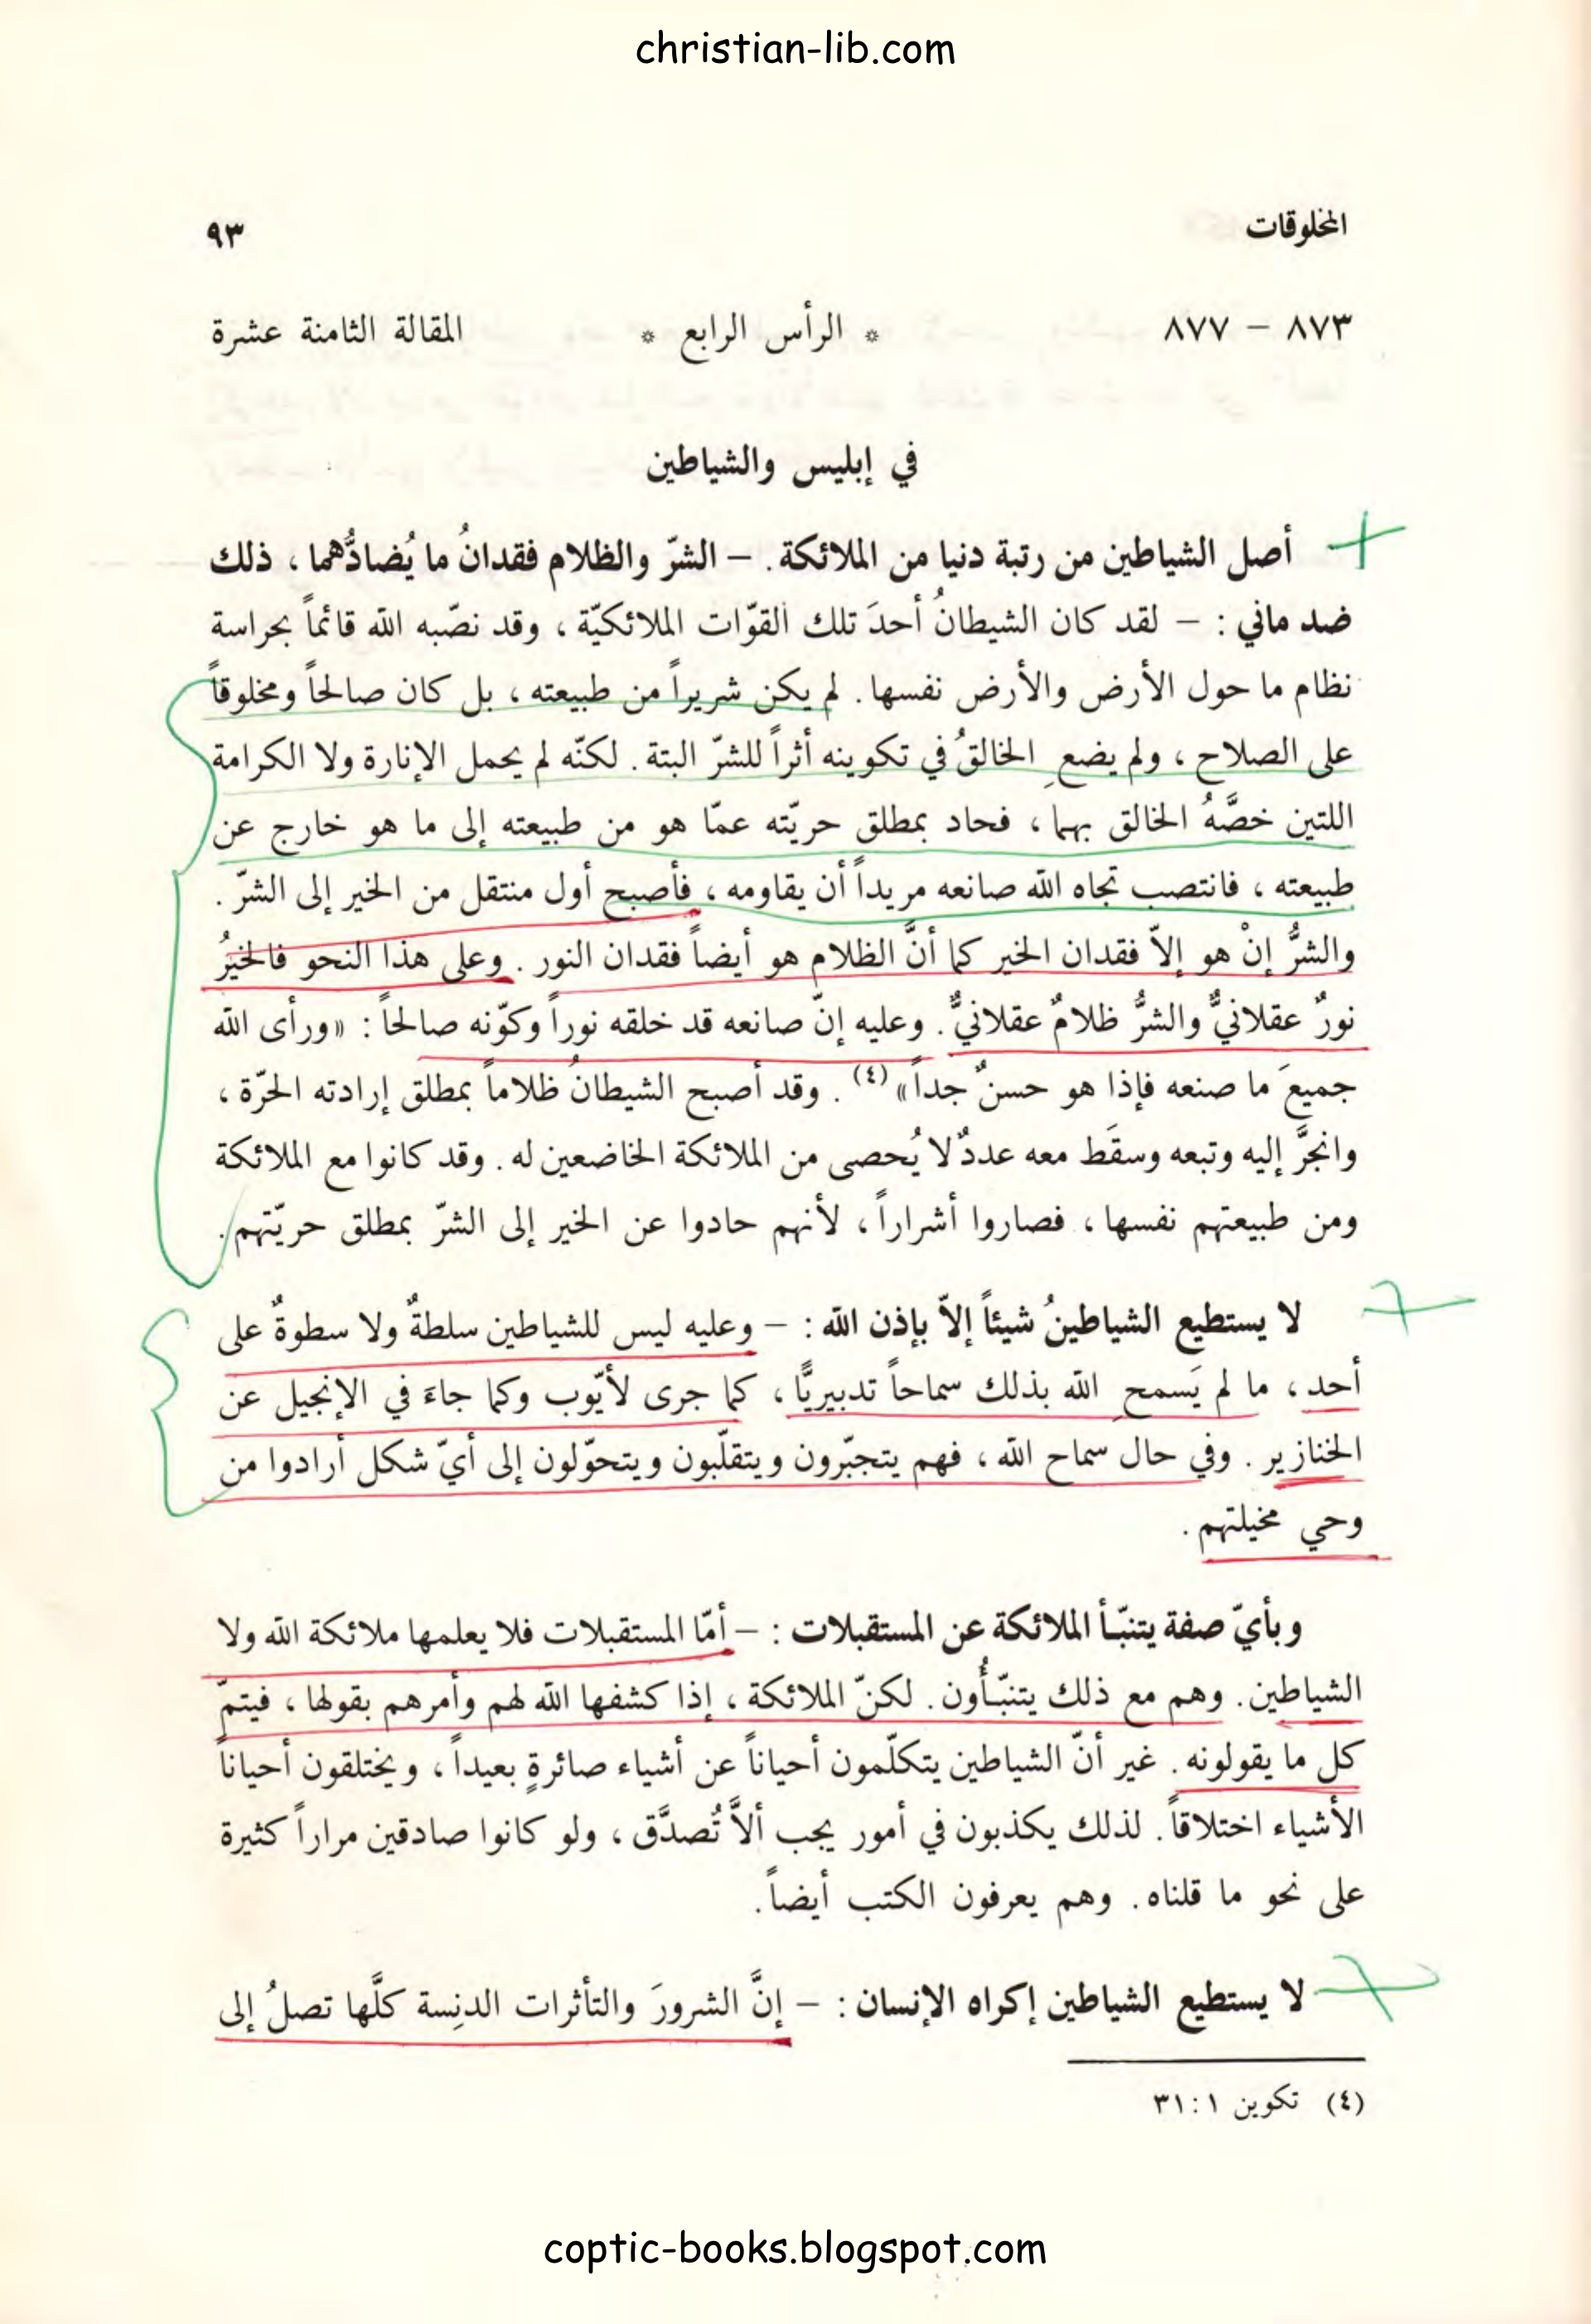 christian-lib.com
المخلوقات ٩٣
٨٧٣ – ٨٧٧ * الرأس الرابع * المقالة الثامنة عشرة
في إبليس والشياطين
أصل الشياطين من رتبة دنيا من الملائكة. – الشرّ والظلام فقدانُ ما يُضادُّهما ، ذلك
ضد ماني : – لقد كان الشيطانُ أحدَ تلك القوّات الملائكيّة ، وقد نصّبه الله قائماً بحراسة
نظام ما حول الأرض والأرض نفسها. لم يكن شريراً من طبيعته ، بل كان صالحاً ومخلوقاً
على الصلاح ، ولم يضعِ الخالقُ في تكوينه أثراً للشرّ البتة. لكنّه لم يحمل الإنارة ولا الكرامة
اللتين خصَّهُ الخالق بهما ، فحاد بمطلق حريّته عمّا هو من طبيعته إلى ما هو خارج عن
طبيعته ، فانتصب تجاه الله صانعه مريداً أن يقاومه ، فأصبح أول منتقل من الخير إلى الشرّ .
والشرُّ إنْ هو إلاّ فقدان الخير كما أنَّ الظلام هو أيضاً فقدان النور . وعلى هذا النحو فالخيرُ
نورٌ عقلانيٌّ والشرُّ ظلامٌ عقلانيٌّ . وعليه إنّ صانعه قد خلقه نوراً وكوّنه صالحاً : «ورأى الله
جميعَ ما صنعه فإذا هو حسنٌ جداً» (٤) . وقد أصبح الشيطانُ ظلاماً بمطلق إرادته الحرّة ،
وانجرَّ إليه وتبعه وسقَط معه عددٌ لا يُحصى من الملائكة الخاضعين له . وقد كانوا مع الملائكة
ومن طبيعتهم نفسها ، فصاروا أشراراً ، لأنهم حادوا عن الخير إلى الشرّ بمطلق حريّتهم.
لا يستطيع الشياطينُ شيئاً إلاّ بإذن الله : – وعليه ليس للشياطين سلطةٌ ولا سطوةٌ على
أحد ، ما لم يَسمحِ الله بذلك سماحاً تدبيريًّا ، كما جرى لأيّوب وكما جاءَ في الإنجيل عن
الخنازير . وفي حال سماح الله ، فهم يتجبّرون ويتقلّبون ويتحوّلون إلى أيّ شكل أرادوا من
وحي مخيلتهم .
وبأيّ صفة يتنبّأ الملائكة عن المستقبلات : – أمّا المستقبلات فلا يعلمها ملائكة الله ولا
الشياطين. وهم مع ذلك يتنبّأُون. لكنّ الملائكة ، إذا كشفها الله لهم وأمرهم بقولها ، فيتمّ
كل ما يقولونه . غير أنّ الشياطين يتكلّمون أحياناً عن أشياء صائرةٍ بعيداً ، ويختلقون أحياناً
الأشياء اختلاقاً . لذلك يكذبون في أمور يجب ألاَّ تُصدَّق ، ولو كانوا صادقين مراراً كثيرة
على نحو ما قلناه. وهم يعرفون الكتب أيضاً.
لا يستطيع الشياطين إكراه الإنسان : – إنَّ الشرورَ والتأثرات الدنِسة كلَّها تصلُ إلى
(٤) تكوين ١ : ٣١
coptic-books.blogspot.com